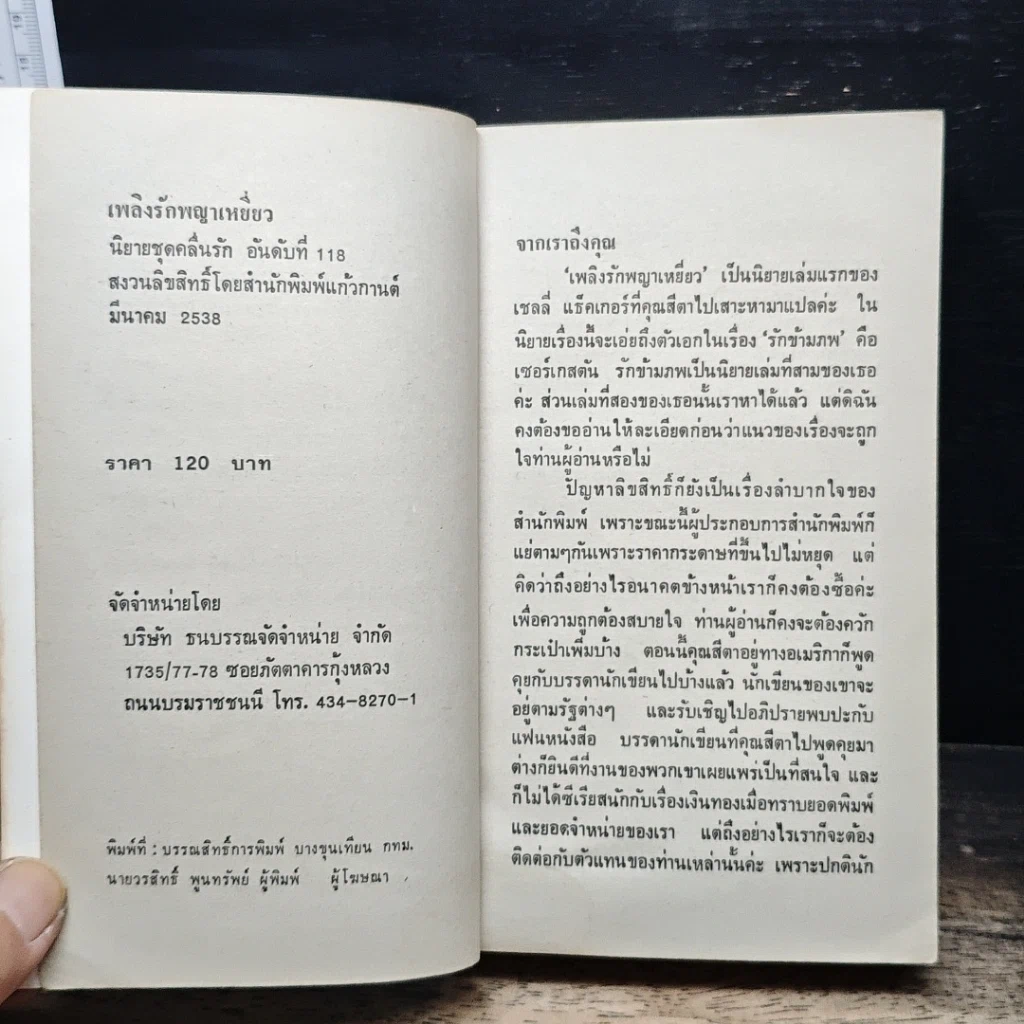 เพลิงรักพญาเหยี่ยว
นิยายชุดคลื่นรัก อันดับที่ 118
สงวนลิขสิทธิ์โดยสำนักพิมพ์แก้วกานต์
มีนาคม 2538
ราคา 120 บาท
จัดจำหน่ายโดย
บริษัท ธนบรรณจัดจำหน่าย จำกัด
1735/77-78 ซอยภัตตาคารกุ้งหลวง
ถนนบรมราชชนนี โทร. 434-8270-1
พิมพ์ที่ : บรรณสิทธิ์การพิมพ์ บางขุนเทียน กทม.
นายวรสิทธิ์ พูนทรัพย์ ผู้พิมพ์ ผู้โฆษณา
จากเราถึงคุณ
'เพลิงรักพญาเหยี่ยว' เป็นนิยายเล่มแรกของ
เชลลี่ แธ็คเกอร์ที่คุณสีตาไปเสาะหามาแปลค่ะ ใน
นิยายเรื่องนี้จะเอ่ยถึงตัวเอกในเรื่อง 'รักข้ามภพ' คือ
เซอร์เกสตัน รักข้ามภพเป็นนิยายเล่มที่สามของเธอ
ค่ะ ส่วนเล่มที่สองของเธอนั้นเราหาได้แล้ว แต่ดิฉัน
คงต้องขออ่านให้ละเอียดก่อนว่าแนวของเรื่องจะถูก
ใจท่านผู้อ่านหรือไม่
ปัญหาลิขสิทธิ์ก็ยังเป็นเรื่องลำบากใจของ
สำนักพิมพ์ เพราะขณะนี้ผู้ประกอบการสำนักพิมพ์ก็
แย่ตามๆกันเพราะราคากระดาษที่ขึ้นไปไม่หยุด แต่
คิดว่าถึงอย่างไรอนาคตข้างหน้าเราก็คงต้องซื้อค่ะ
เพื่อความถูกต้องสบายใจ ท่านผู้อ่านก็คงจะต้องควัก
กระเป๋าเพิ่มบ้าง ตอนนี้คุณสีตาอยู่ทางอเมริกาก็พูด
คุยกับบรรดานักเขียนไปบ้างแล้ว นักเขียนของเขาจะ
อยู่ตามรัฐต่างๆ และรับเชิญไปอภิปรายพบปะกับ
แฟนหนังสือ บรรดานักเขียนที่คุณสีตาไปพูดคุยมา
ต่างก็ยินดีที่งานของพวกเขาเผยแพร่เป็นที่สนใจ และ
ก็ไม่ได้ซีเรียสนักกับเรื่องเงินทองเมื่อทราบยอดพิมพ์
และยอดจำหน่ายของเรา แต่ถึงอย่างไรเราก็จะต้อง
ติดต่อกับตัวแทนของท่านเหล่านั้นค่ะ เพราะปกตินัก